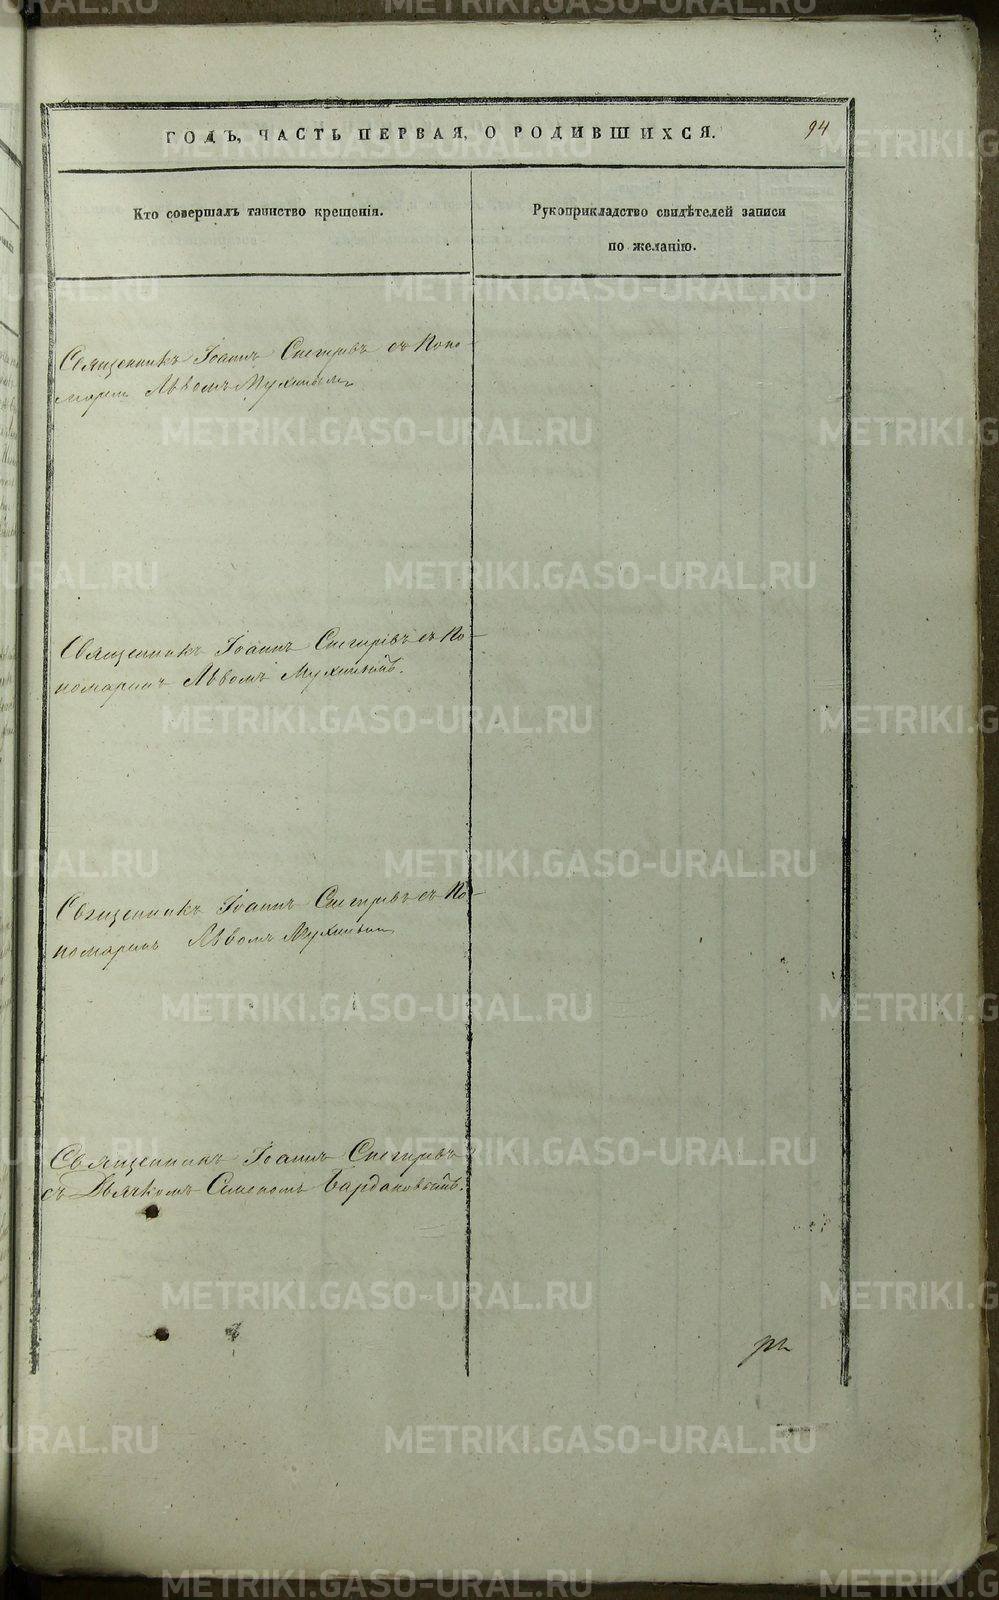 ГОДЪ, ЧАСТЬ ПЕРВАЯ, О РОДИВШИХСЯ.
94
Кто совершалъ таинство крещенія.
Рукоприкладство свидѣтелей записи
по желанію.
Священникъ Іоаннъ Снегиревъ съ Поно
марем Львомъ Мухиным
Священникъ Іоаннъ Снегиревъ съ По-
номаремъ Львомъ Мухинымъ.
Священникъ Іоаннъ Снегиревъ съ По-
номаремъ Львомъ Мухиным
Священникъ Іоаннъ Снегиревъ
съ Дьячкомъ Симеономъ
METRIKI.GASO-URAL.RU